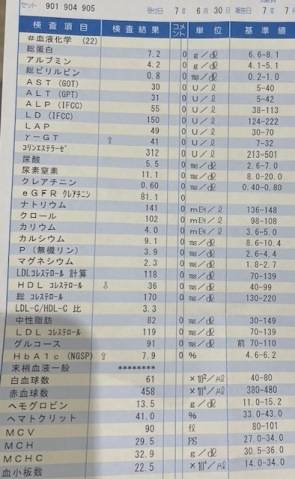 セット 901 904 905 受付日 7年 6月30日 報告日 7年 7
検査項目 検査結果 コメント 単位 基準値
#血液化学 (22)
総蛋白 7.2 0 g/dℓ 6.6-8.1
アルブミン 4.2 0 g/dℓ 4.1-5.1
総ビリルビン 0.8 0 mg/dℓ 0.2-1.0
AST (GOT) 30 0 U/ℓ 5-40
ALT (GPT) 31 0 U/ℓ 5-42
ALP (IFCC) 55 0 U/ℓ 38-113
LD (IFCC) 150 0 U/ℓ 124-222
LAP 49 0 U/ℓ 30-70
γ-GT ⇧ 41 0 U/ℓ 7-32
コリンエステラーゼ 312 0 U/ℓ 213-501
尿酸 5.5 0 mg/dℓ 2.6-7.0
尿素窒素 11.1 0 mg/dℓ 8.0-20.0
クレアチニン 0.60 0 mg/dℓ 0.40-0.80
eGFR クレアチニン 81.1 0
ナトリウム 141 0 mEq/ℓ 136-148
クロール 102 0 mEq/ℓ 98-108
カリウム 4.0 0 mEq/ℓ 3.6-5.0
カルシウム 9.1 0 mg/dℓ 8.6-10.4
P (無機リン) 3.9 0 mg/dℓ 2.4-4.3
マグネシウム 2.3 0 mg/dℓ 1.8-2.7
LDLコレステロール 計算 118 0 mg/dℓ 70-139
HDL コレステロール ⇩ 36 0 mg/dℓ 40-99
総 コレステロール 170 0 mg/dℓ 130-220
LDL-C/HDL-C 比 3.3
中性脂肪 82 0 mg/dℓ 30-149
LDL コレステロール 119 0 mg/dℓ 70-139
グルコース 91 0 mg/dℓ 前 70-110
HbA1c (NGSP) ⇧ 7.9 0 % 4.6-6.2
末梢血液一般 ********
白血球数 61 ×10²/μℓ 40-80
赤血球数 458 ×10⁴/μℓ 380-480
ヘモグロビン 13.5 g/dℓ 11.0-15.2
ヘマトクリット 41.0 % 33.0-43.0
MCV 90 80-101
MCH 29.5 pg 27.0-34.0
MCHC 32.9 g/dℓ 30.5-36.0
血小板数 22.5 ×10⁴/μℓ 14.0-34.0